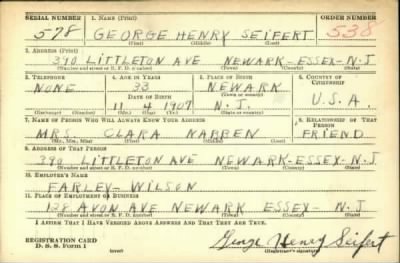 SERIAL NUMBER 1. NAME (Print) ORDER NUMBER
578 GEORGE HENRY SEIFERT 538
(First) (Middle) (Last)
2. ADDRESS (Print)
390 LITTLETON AVE NEWARK-ESSEX-N.J
(Number and street or R. F. D. number) (Town) (County) (State)
3. TELEPHONE 4. AGE IN YEARS 5. PLACE OF BIRTH 6. COUNTRY OF CITIZENSHIP
NONE 33 NEWARK
DATE OF BIRTH (Town or county)
11 4 1907 N.J. U.S.A.
(Exchange) (Number) (Mo.) (Day) (Yr.) (State or country)
7. NAME OF PERSON WHO WILL ALWAYS KNOW YOUR ADDRESS 8. RELATIONSHIP OF THAT PERSON
MRS. CLARA WARREN FRIEND
(Mr., Mrs., Miss) (First) (Middle) (Last)
9. ADDRESS OF THAT PERSON
390 LITTLETON AVE NEWARK-ESSEX-N.J
(Number and street or R. F. D. number) (Town) (County) (State)
10. EMPLOYER'S NAME
FARLEY-WILSON
11. PLACE OF EMPLOYMENT OR BUSINESS
128 AVON AVE NEWARK ESSEX-N.J
(Number and street or R. F. D. number) (Town) (County) (State)
I AFFIRM THAT I HAVE VERIFIED ABOVE ANSWERS AND THAT THEY ARE TRUE.
REGISTRATION CARD
D. S. S. Form 1 (over) George Henry Seifert
(Registrant's signature)